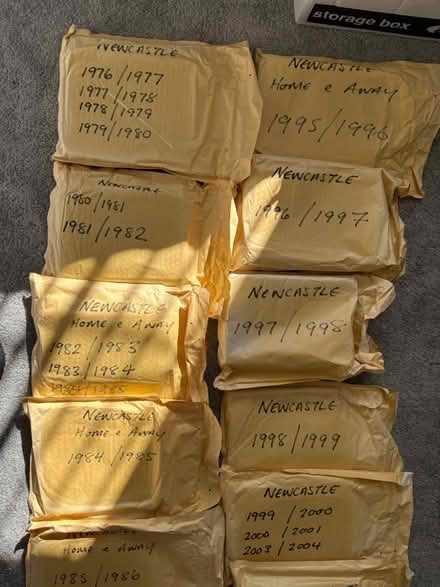 storage box
NEWCASTLE
1976/1977
1977/1978
1978/1979
1979/1980
NEWCASTLE
1980/1981
1981/1982
NEWCASTLE
HOME & AWAY
1982/1983
1983/1984
1984/1985
NEWCASTLE
HOME & AWAY
1984/1985
HOME & AWAY
1985/1986
NEWCASTLE
HOME & AWAY
1995/1996
NEWCASTLE
1996/1997
NEWCASTLE
1997/1998
NEWCASTLE
1998/1999
NEWCASTLE
1999/2000
2000/2001
2003/2004